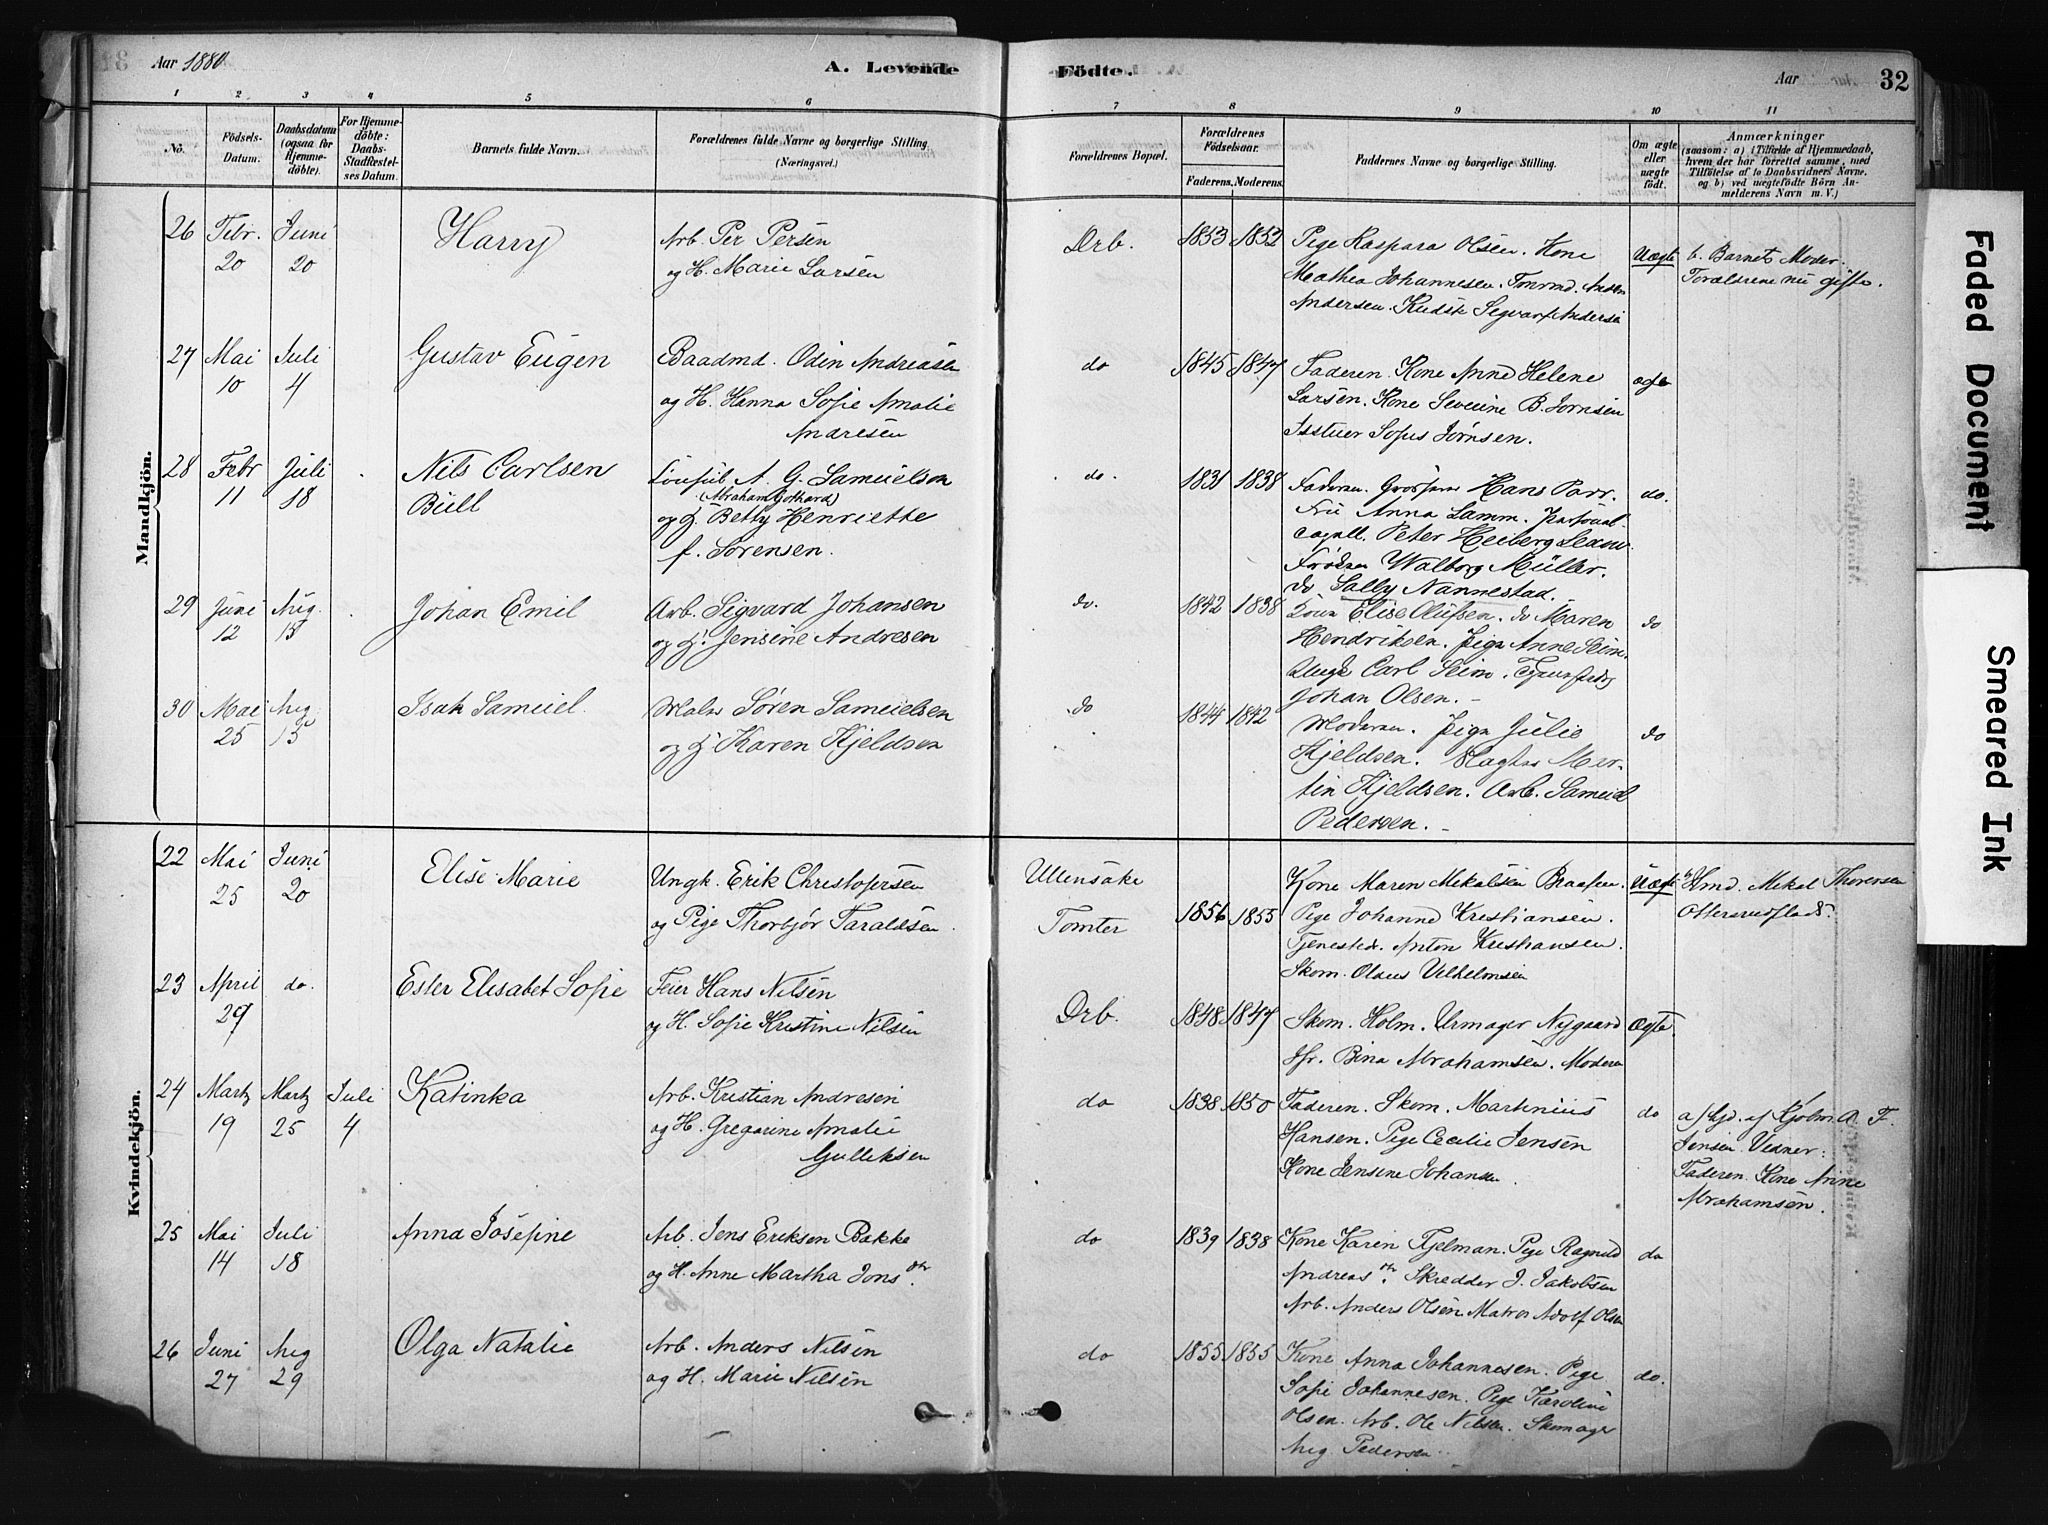 Aar 1880
A. Levende
Födte.
Aar
32
1 2 3 4 5 6 7 8 9 10 11
No.
Födsels-
Datum.
Daabsdatum
(ogsaa for
Hjemme-
döbte).
For Hjemme-
döbte:
Daabs-
Stadfæstel-
ses Datum.
Barnets fulde Navn.
Forældrenes fulde Navne og borgerlige Stilling.
(Næringsvei.)
Forældrenes Bopæl.
Forældrenes
Födselsaar.
Faderens. Moderens.
Faddernes Navne og borgerlige Stilling.
Om ægte
eller
uægte
födt.
Anmærkninger
(saasom: a) i Tilfælde af Hjemmedaab,
hvem der har forrettet samme, med
Tilföielse af to Daabsvidners Navne.
og b) ved uægtefödte Börn An-
melderens Navn m. V.)
Mandkjön.
26 Febr. 20 Juni 20
Harry
Arb. Per Persen
og H. Marie Larsen
Drb.
1853 1852
Pige Kaspara Olsen. Kone
Mathea Johannesen. Tømmd.
Andersen. Kudsk Segvart Anderse
Uægte
b. Barnets Moder.
Forældrene nu gifte.
27 Mai 10 Juli 4
Gustav Eugen
Baadmd. Odin Andreasen
og H. Hanna Sofie Amalie
Andresen
do
1845 1847
Faderen. Kone Anne Helene
Larsen. Kone Severine B. Jørnsen
Sofus Jørnsen.
ægte
28 Febr 11 Juli 18
Nils Carlsen
Bull
A. G. Samuelson
(Abraham Gothard)
og H. Betty Henriette
f. Sørensen.
do.
1831 1838
Faderen. Hans Parr.
Fru Anna Lamm.
Peter Heiberg
Frøken Walborg Müller.
do Sally Nannestad.
do.
29 Juni 12 Aug. 15
Johan Emil
Arb. Sigvard Johansen
og H. Jensine Andresen
do.
1842 1838
Kone Elise Olufsen. do Maren
Hendriksen. Pige Anne Seim.
Ungk Carl Seim.
Johan Olsen.
do
30 Mai 25 Aug. 15
Isak Samuel.
Søren Samuelsen
og H. Karen Kjeldsen
do
1844 1842
Moderen. Pige Julie
Kjeldsen. Mar-
tin Kjeldsen. Arb. Samuel
Pedersen.
do
Kvindekjön.
22 Mai 25 Juni 20
Elise Marie
Ungk. Erik Christofersen
og Pige Thorbjør Taraldsen.
Ullensake
Tomter
1856 1855
Kone Maren Mekalsen Braaten.
Pige Johanne Kristiansen.
Tjenestedr. Anton Kristiansen.
Skom. Olaus Vilhelmsen
Uægte
b. Hmd. Mekal Thorensen
23 April 29 do.
Ester Elisabet Sofie
Feier Hans Nilsen
og H. Sofie Kristine Nilsen
Drb.
1848 1847
Skom. Holm. Urmager Nygaard
Jfr. Bina Abrahamsen. Moderen
Ægte
24 Martz 19 Martz 25 Juli 4
Katinka
Arb. Kristian Andresen
og H. Gregarine Amalie
Gulliksen
do
1838 1850
Faderen. Skom. Martinius
Hansen. Pige Cecilie Jensen
Kone Jensine Johansen.
do
a) Hjd. af Kjøbm. A. F.
Jensen. Vidner:
Faderen. Kone Anne
Abrahamsen.
25 Mai 14 Juli 18
Anna Josefine
Arb. Jens Eriksen Bakke
og H. Anne Martha Jonsdtr.
do
1839 1838
Kone Karen Fjelman. Pige Ragnild
Andreasdtr. Skredder J. Jakobsen
Arb. Anders Olsen Matros Adolf Olsen
do
26 Juni 27 Aug 29
Olga Natalie
Arb. Anders Nilsen
og H. Marie Nilsen
do
1855 1855
Kone Anna Johannesen. Pige
Sofie Johannesen. Pige Karoline
Olsen. Arb. Ole Nilsen. Skomager
Aug. Pedersen.
do.
Faded Document
Smeared Ink